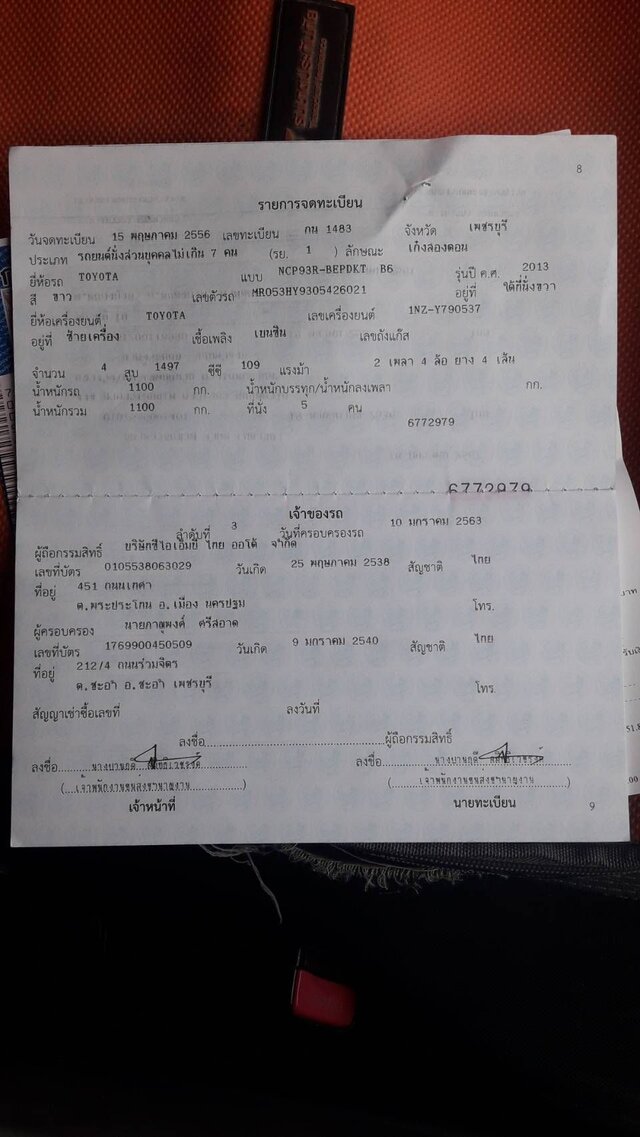 8
รายการจดทะเบียน
วันจดทะเบียน 15 พฤษภาคม 2556 เลขทะเบียน กน 1483 จังหวัด เพชรบุรี
ประเภท รถยนต์นั่งส่วนบุคคลไม่เกิน 7 คน (รย. 1 ) ลักษณะ เก๋งสองตอน
ยี่ห้อรถ TOYOTA แบบ NCP93R-BEPDKT B6 รุ่นปี ค.ศ. 2013
สี ขาว เลขตัวรถ MR053HY9305426021 อยู่ที่ ใต้ที่นั่งขวา
ยี่ห้อเครื่องยนต์ TOYOTA เลขเครื่องยนต์ 1NZ-Y790537
อยู่ที่ ซ้ายเครื่อง เชื้อเพลิง เบนซิน เลขถังแก๊ส
จำนวน 4 สูบ 1497 ซีซี 109 แรงม้า 2 เพลา 4 ล้อ ยาง 4 เส้น
น้ำหนักรถ 1100 กก. น้ำหนักบรรทุก/น้ำหนักลงเพลา กก.
น้ำหนักรวม 1100 กก. ที่นั่ง 5 คน
6772979
6772979
เจ้าของรถ
ลำดับที่ 3 วันที่ครอบครองรถ 10 มกราคม 2563
ผู้ถือกรรมสิทธิ์ บริษัทซีไอเอ็มบี ไทย ออโต้ จำกัด
เลขที่บัตร 0105538063029 วันเกิด 25 พฤษภาคม 2538 สัญชาติ ไทย
ที่อยู่ 451 ถนนเทศา
ต.พระประโทน อ.เมือง นครปฐม โทร.
ผู้ครอบครอง นายภาณุพงศ์ ศรีสอาด
เลขที่บัตร 1769900450509 วันเกิด 9 มกราคม 2540 สัญชาติ ไทย
ที่อยู่ 212/4 ถนนร่วมจิตร
ต.ชะอำ อ.ชะอำ เพชรบุรี โทร.
สัญญาเช่าซื้อเลขที่ ลงวันที่
ลงชื่อ ผู้ถือกรรมสิทธิ์
ลงชื่อ ลงชื่อ
(เจ้าพนักงานขนส่งชำนาญงาน) (เจ้าพนักงานขนส่งชำนาญงาน)
เจ้าหน้าที่ นายทะเบียน
9